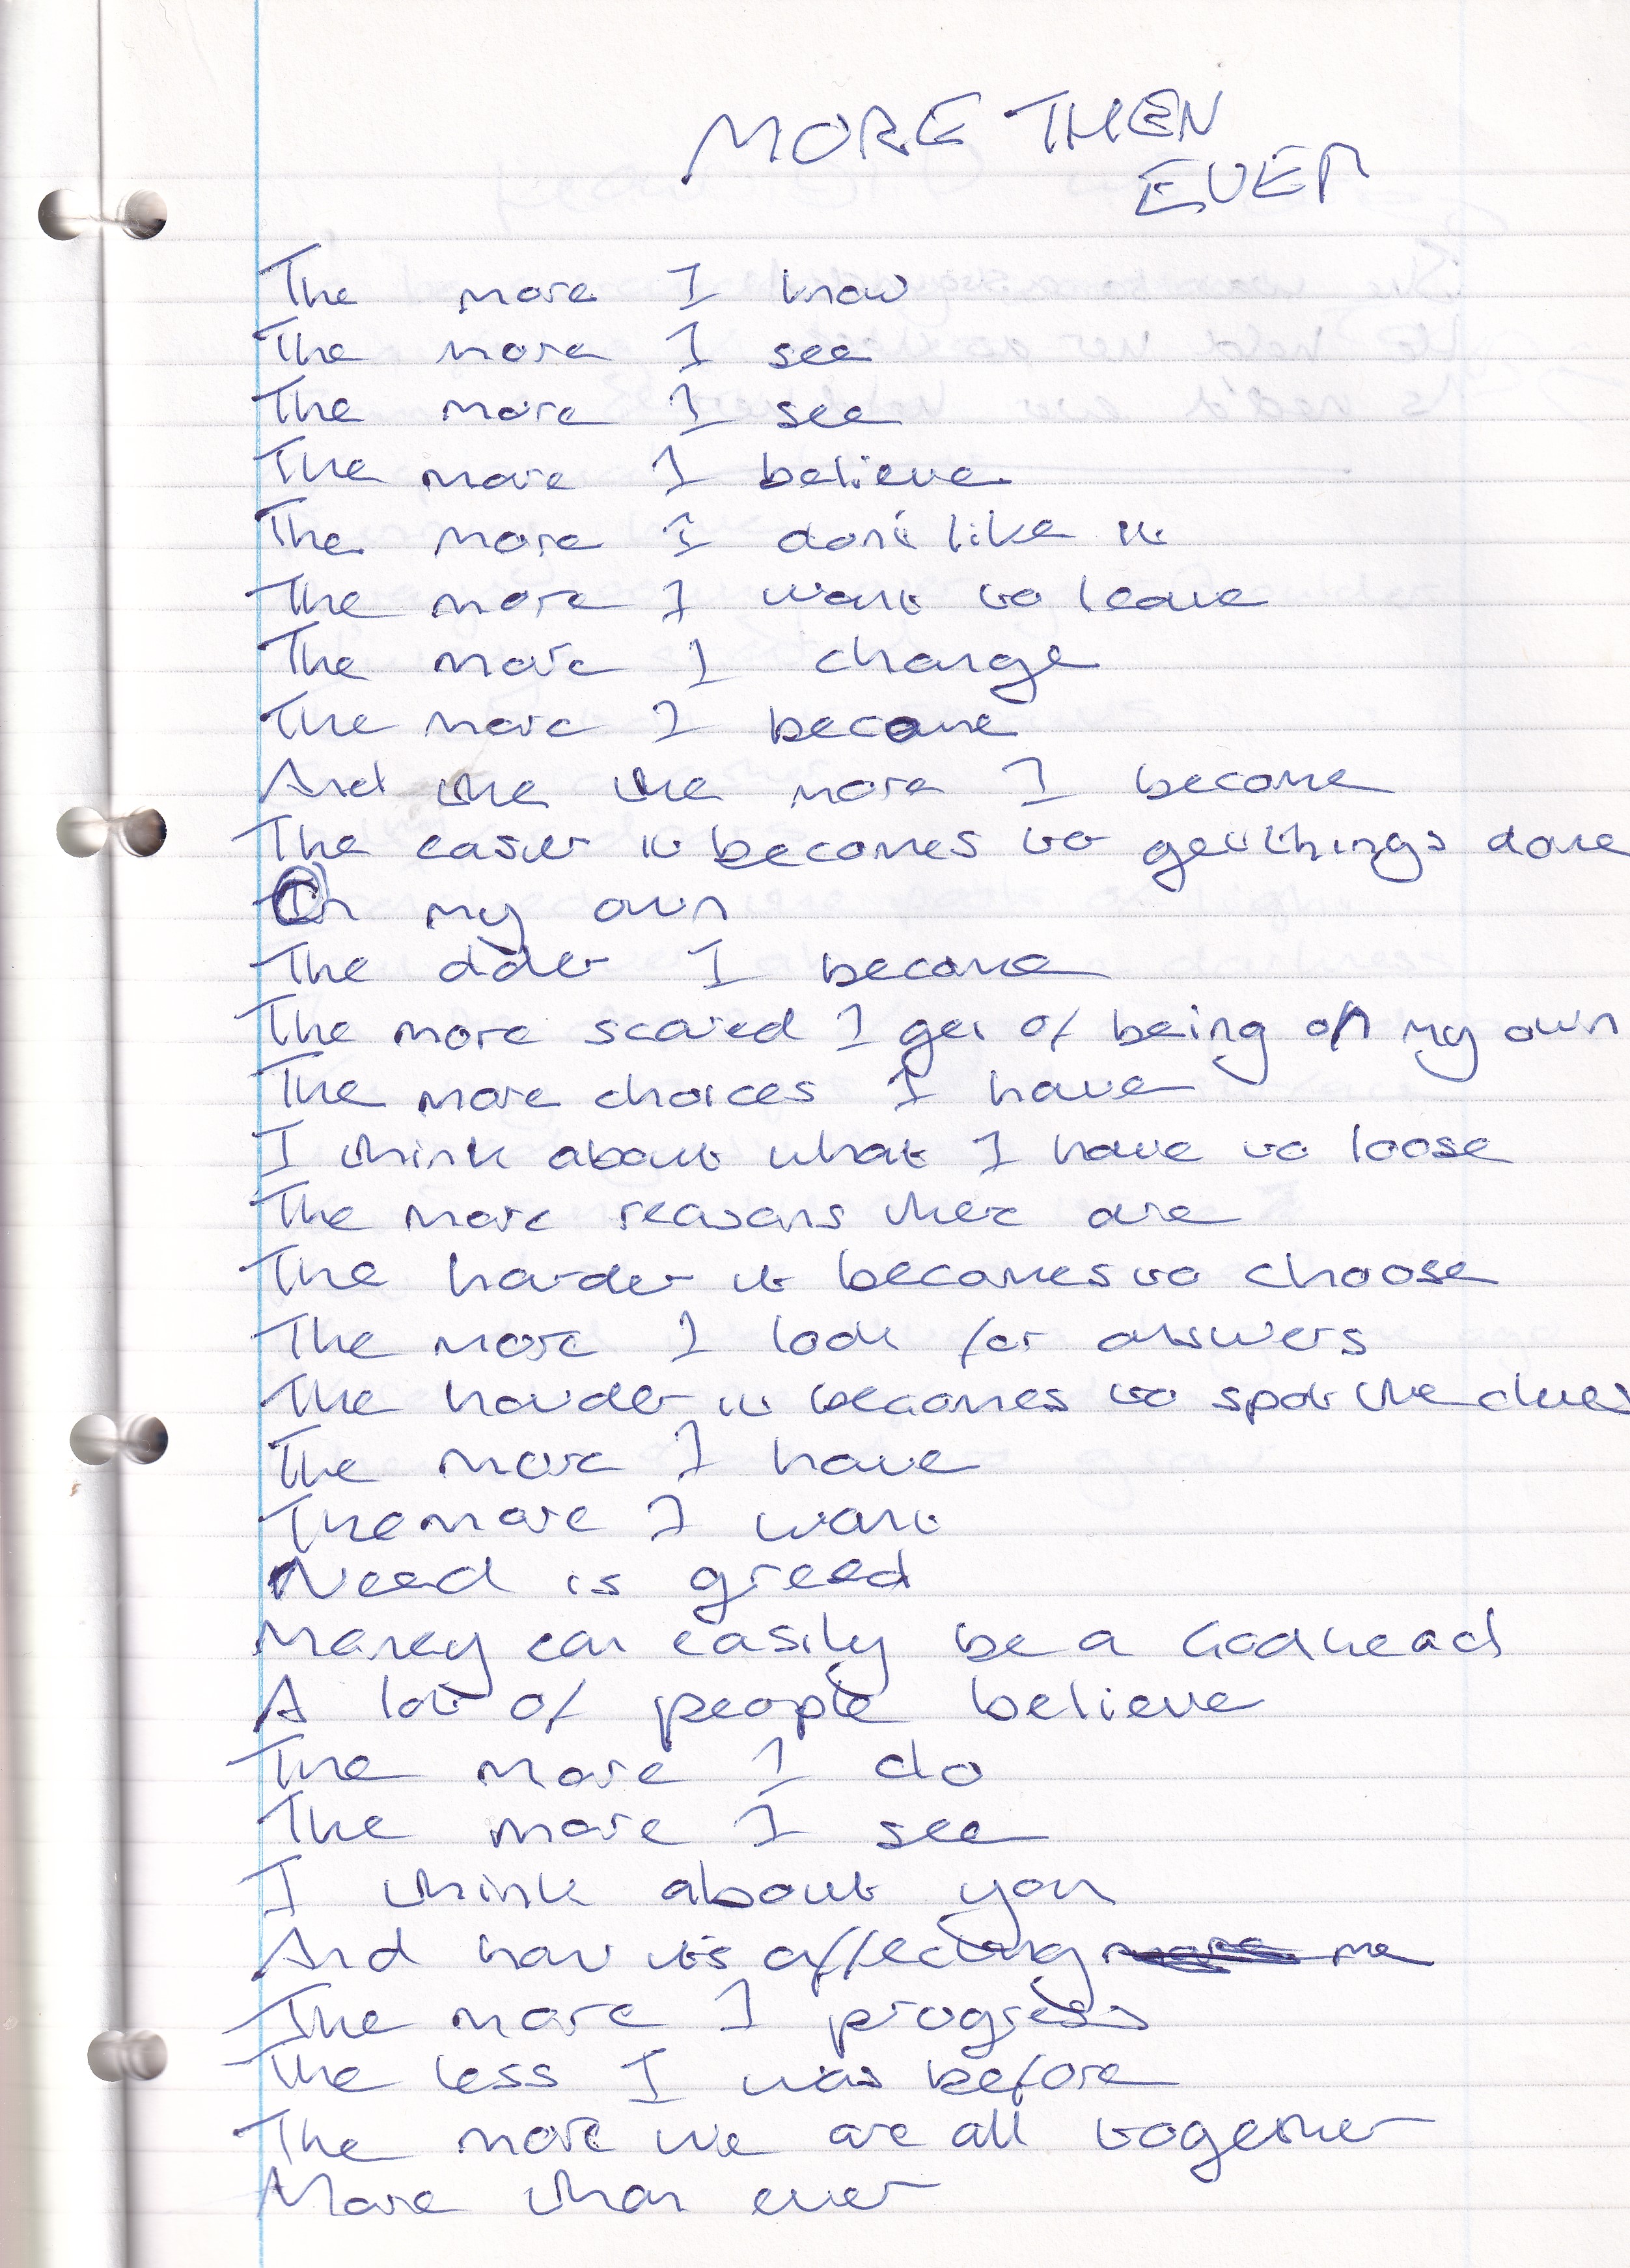 MORE THEN
EVER
The more I know
The more I see
The more I see
The more I believe
The more I don't like it
The more I want to leave
The more I change
The more I become
And the the more I become
The easier it becomes to get things done
On my own
The older I become
The more scared I get of being on my own
The more choices I have
I think about what I have to loose
The more reasons there are
The harder it becomes to choose
The more I look for answers
The harder it becomes to spot the clues
The more I have
The more I want
Need is greed
Money can easily be a Godhead
A lot of people believe
The more I do
The more I see
I think about you
And how it's affecting me
The more I progress
The less I was before
The more we are all together
More than ever